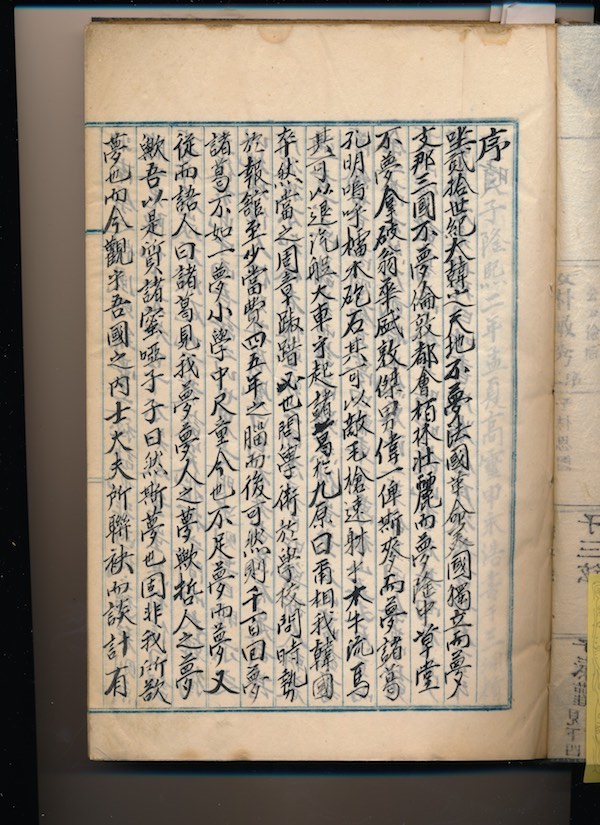 序
坐貳拾世紀大韓之天地不夢法國革命美國獨立而夢
支那三國不夢倫敦都會栢林壯麗而夢隆中草堂
不夢拿破翁華盛敦傑男偉一俾斯麥而夢諸葛
孔明嗚呼檑木砲石其可以敵毛槍速射乎木牛流馬
其可以追汽船大車乎起諸葛於九原曰甭相我韓國
卒然當之周章踧踖必也問學術於學校問時勢
於報舘至少當費四五年之腦而後可然則千百回夢
諸葛不如一夢小學中尺童今也不足夢而夢又
從而語人曰諸葛見我夢夢人之夢歟哲人之夢
歟吾以是質諸蜜啞子子曰然斯夢也固非我所欲
夢也而今觀乎吾國之內士大夫所聯袂而談計有